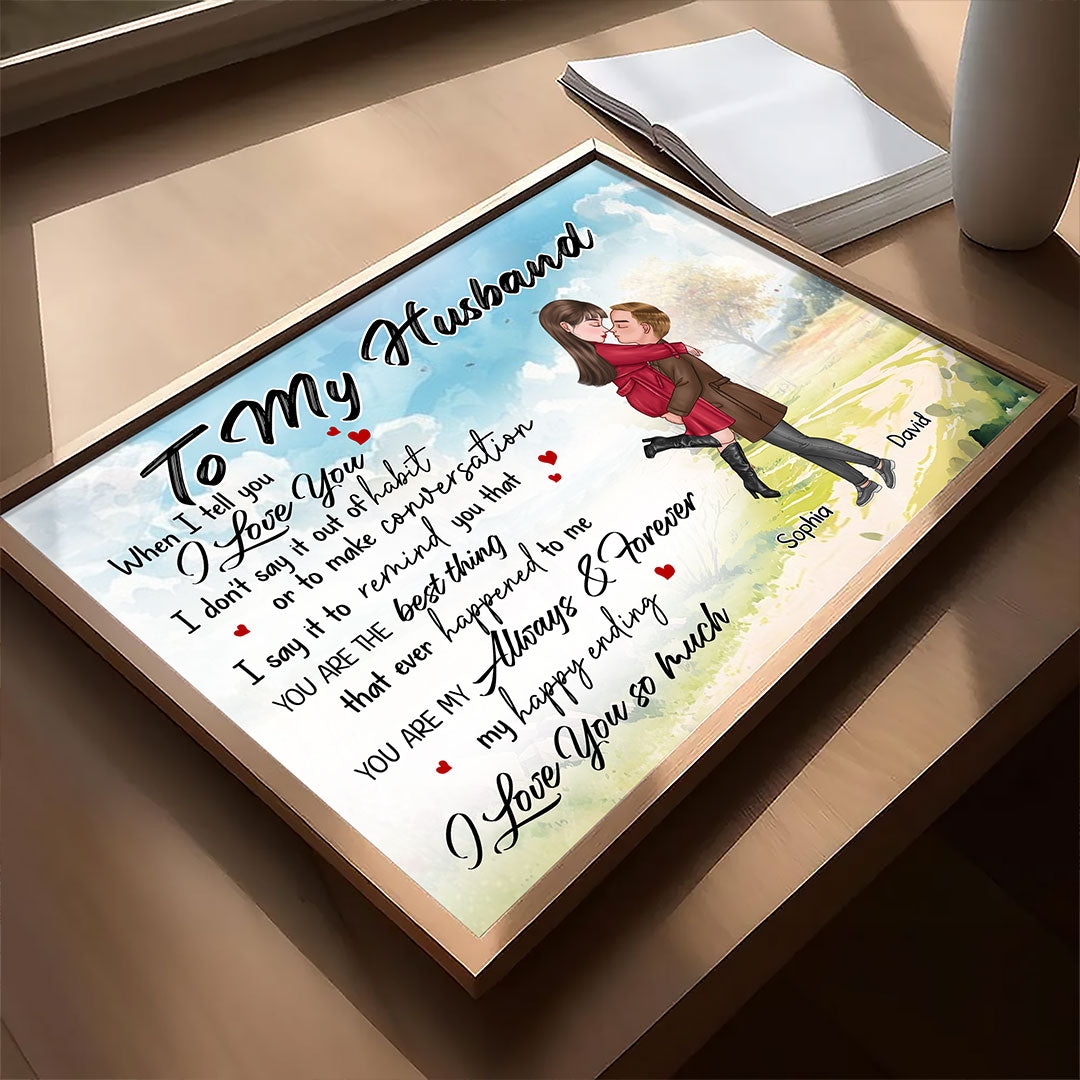 To My Husband
When I tell you
I Love You
I don't say it out of habit
or to make conversation
I say it to remind you that
YOU ARE THE best thing
that ever happened to me
YOU ARE MY Always & Forever
my happy ending
I Love You so much
Sophia
David